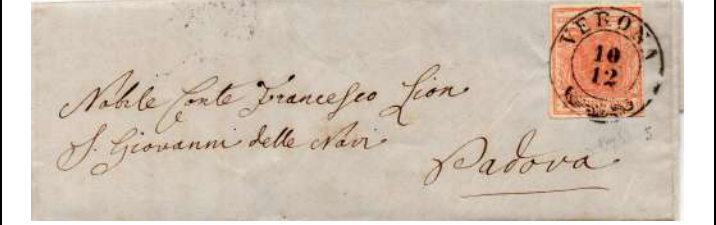 VERONA
10
12
Nobile Conte Francesco Lion
S. Giovanni delle Navi
Padova
5